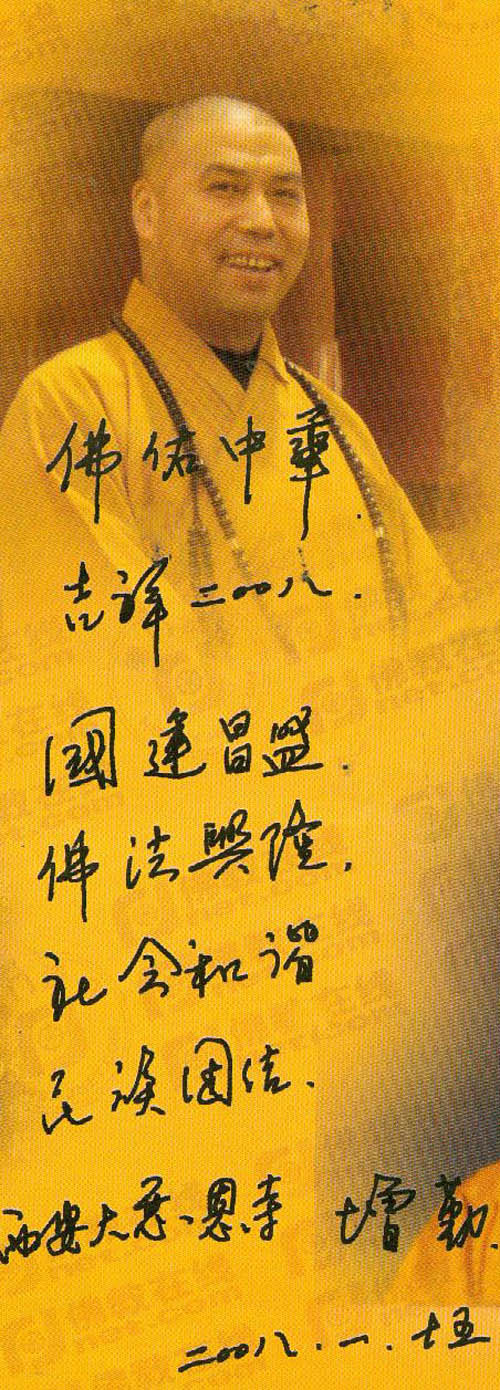 佛佑中華.
吉祥二〇〇八.
國運昌盛.
佛法興隆.
社会和谐
民族团结.
西安大慈恩寺 增勤.
二〇〇八.一.十五
佛教在线